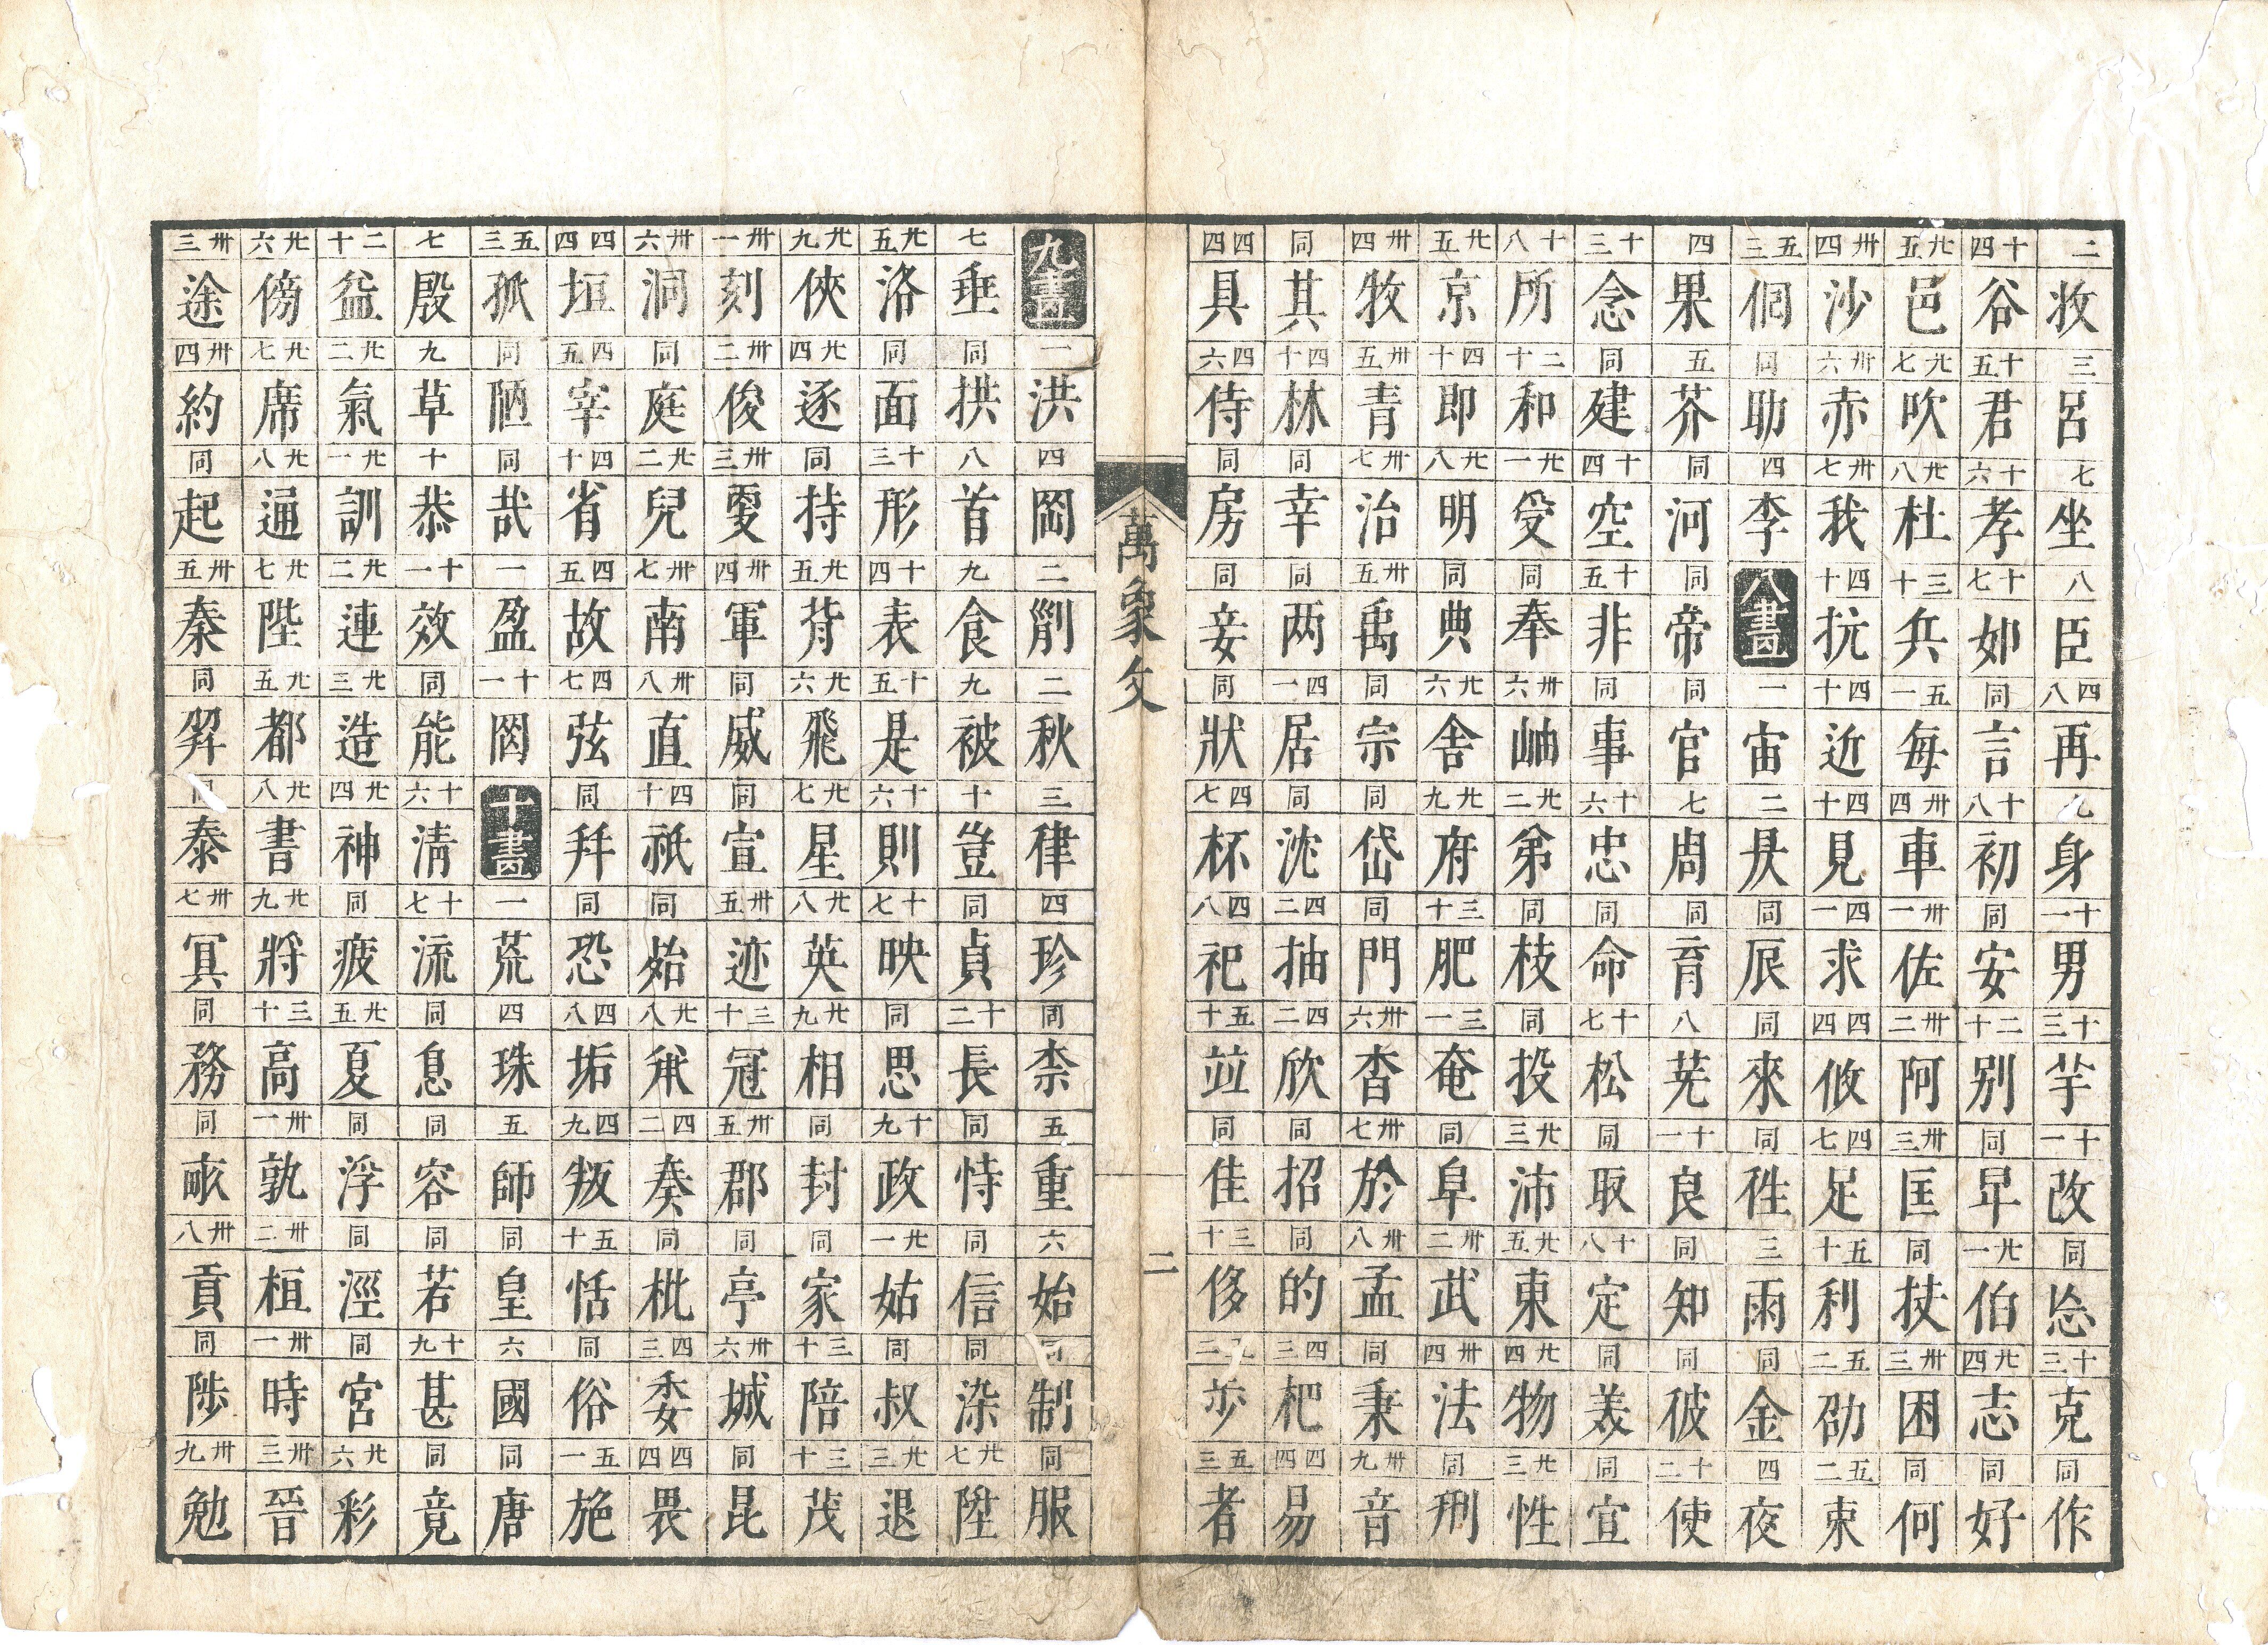 二牧三呂七坐八臣四八再九身十一男十三芋十一改同忩十三克同作
十四谷十五君十六孝十七如同言十八初同安二十别同早廿一伯廿四志同好
廿五邑廿七吹廿八杜三十兵五一每卅四車卅一佐卅二阿卅三匡同扶卅三困同何
卅四沙卅六赤卅七我四十抗四十近四十見四一求四四攸四七足五十利五二劭五二束
五三侗同助四李八畫一宙二昃同辰同來同往三雨同金四夜
四果五芥同河同帝同官七周同育八芜十一良同知同彼十二使
十三念同建十四空十五非同事十六忠同命十七松同取十八定同美同宜
十八所二十和廿一受同奉卅六岫廿二弟同枝同投廿三沛廿五東廿四物廿三性
廿五京四十即廿八明同典廿六舍廿九府三十肥三一奄同阜卅二武卅四法同刑
卅四牧卅五青卅七治卅五禹同宗同岱同門卅六杳卅七於卅八孟同秉卅九音
同其四十林同幸同两四一居同沈四二抽四二欣同招同的四三杷四四易
四四具四六侍同房同妾同狀四七杯四八祀五十竝同佳三十侈步五三者
萬象文 二
九畫一洪四岡二剛二秋三律四珍同柰五重六始同制同服
七垂同拱八首九食九被十豈同貞十二長同恃同信同染廿七陞
廿五洛同面十三形十四表十五是十六則十七映同思十九政廿一姑同叔廿三退
廿九俠廿四逐同持廿五背廿六飛廿七星廿八英廿九相同封同家三十陪三十茂
卅一刻卅二俊卅三更卅四軍同威同宣卅五迹三十冠卅五郡同亭卅六城同昆
卅六洞同庭廿二兒卅七南卅八直四十祇同殆廿八四二奏同枇四三委四四畏
四四垣四五宰四十省四五故四七弦同拜同恐四八垢四九叛五十恬同俗五一施
五三孤同陋同哉一盈十一罔十畫一荒四珠五師同皇六國同唐
七殷九草十恭十一效同能十六清十七流同息同容同若十九甚同竟
二十益廿二氣廿一訓廿二連廿三造廿四神同疲廿五夏同浮同涇同宮廿六彩
廿六傍廿七席廿八通廿七陛廿五都廿八書廿九將三十高卅一孰卅二桓卅一時卅三晉
卅三途卅四約同起卅五秦同羿同泰卅七冥同務同畝卅八貢同陟卅九勉